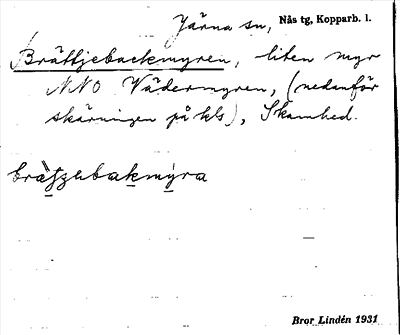 Järna sn, Nås tg, Kopparb. l.
Brättjebackmyren, liten myr
NNO Vädermyren, (nedanför
skärningen på kls), Skamhed.
Bror Lindén 1931